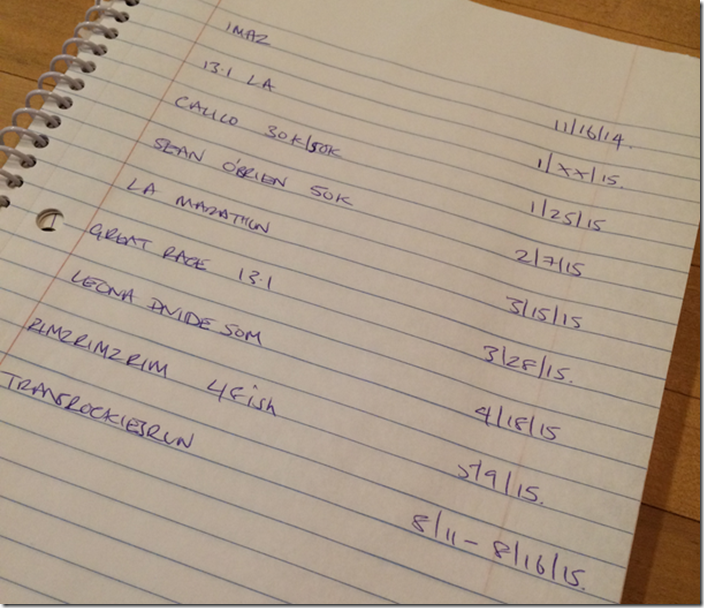 IMAZ 11/16/14.
13.1 LA 1/xx/15.
CALICO 30K/50K 1/25/15
SEAN O'BRIEN 50K 2/7/15
LA MARATHON 3/15/15
GREAT RACE 13.1 3/28/15.
LEONA DIVIDE 50M 4/18/15
RIM2RIM2RIM 4Fish 5/9/15.
TRANSROCKIESRUN 8/11 - 8/16/15.